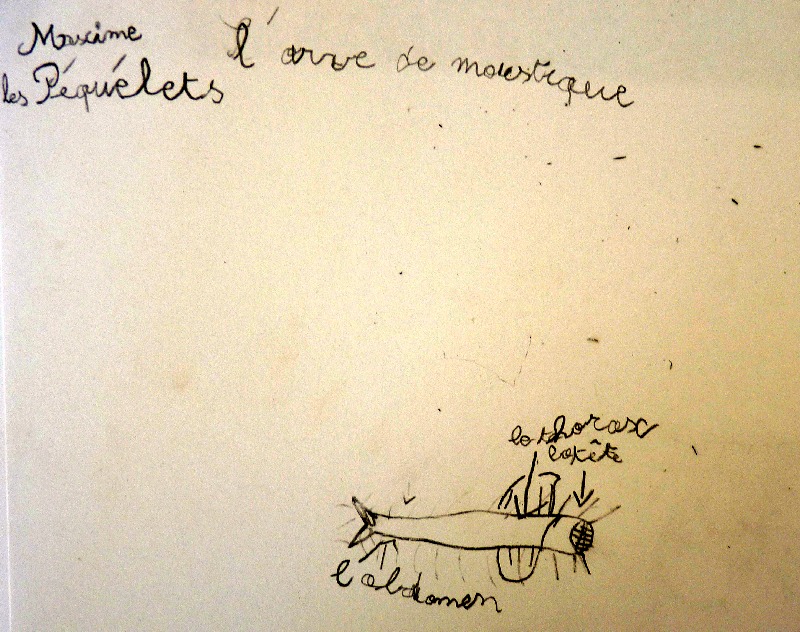 Maxime
les Péquélets
l'arve de moustique
le thorax
la tête
l'abdomen